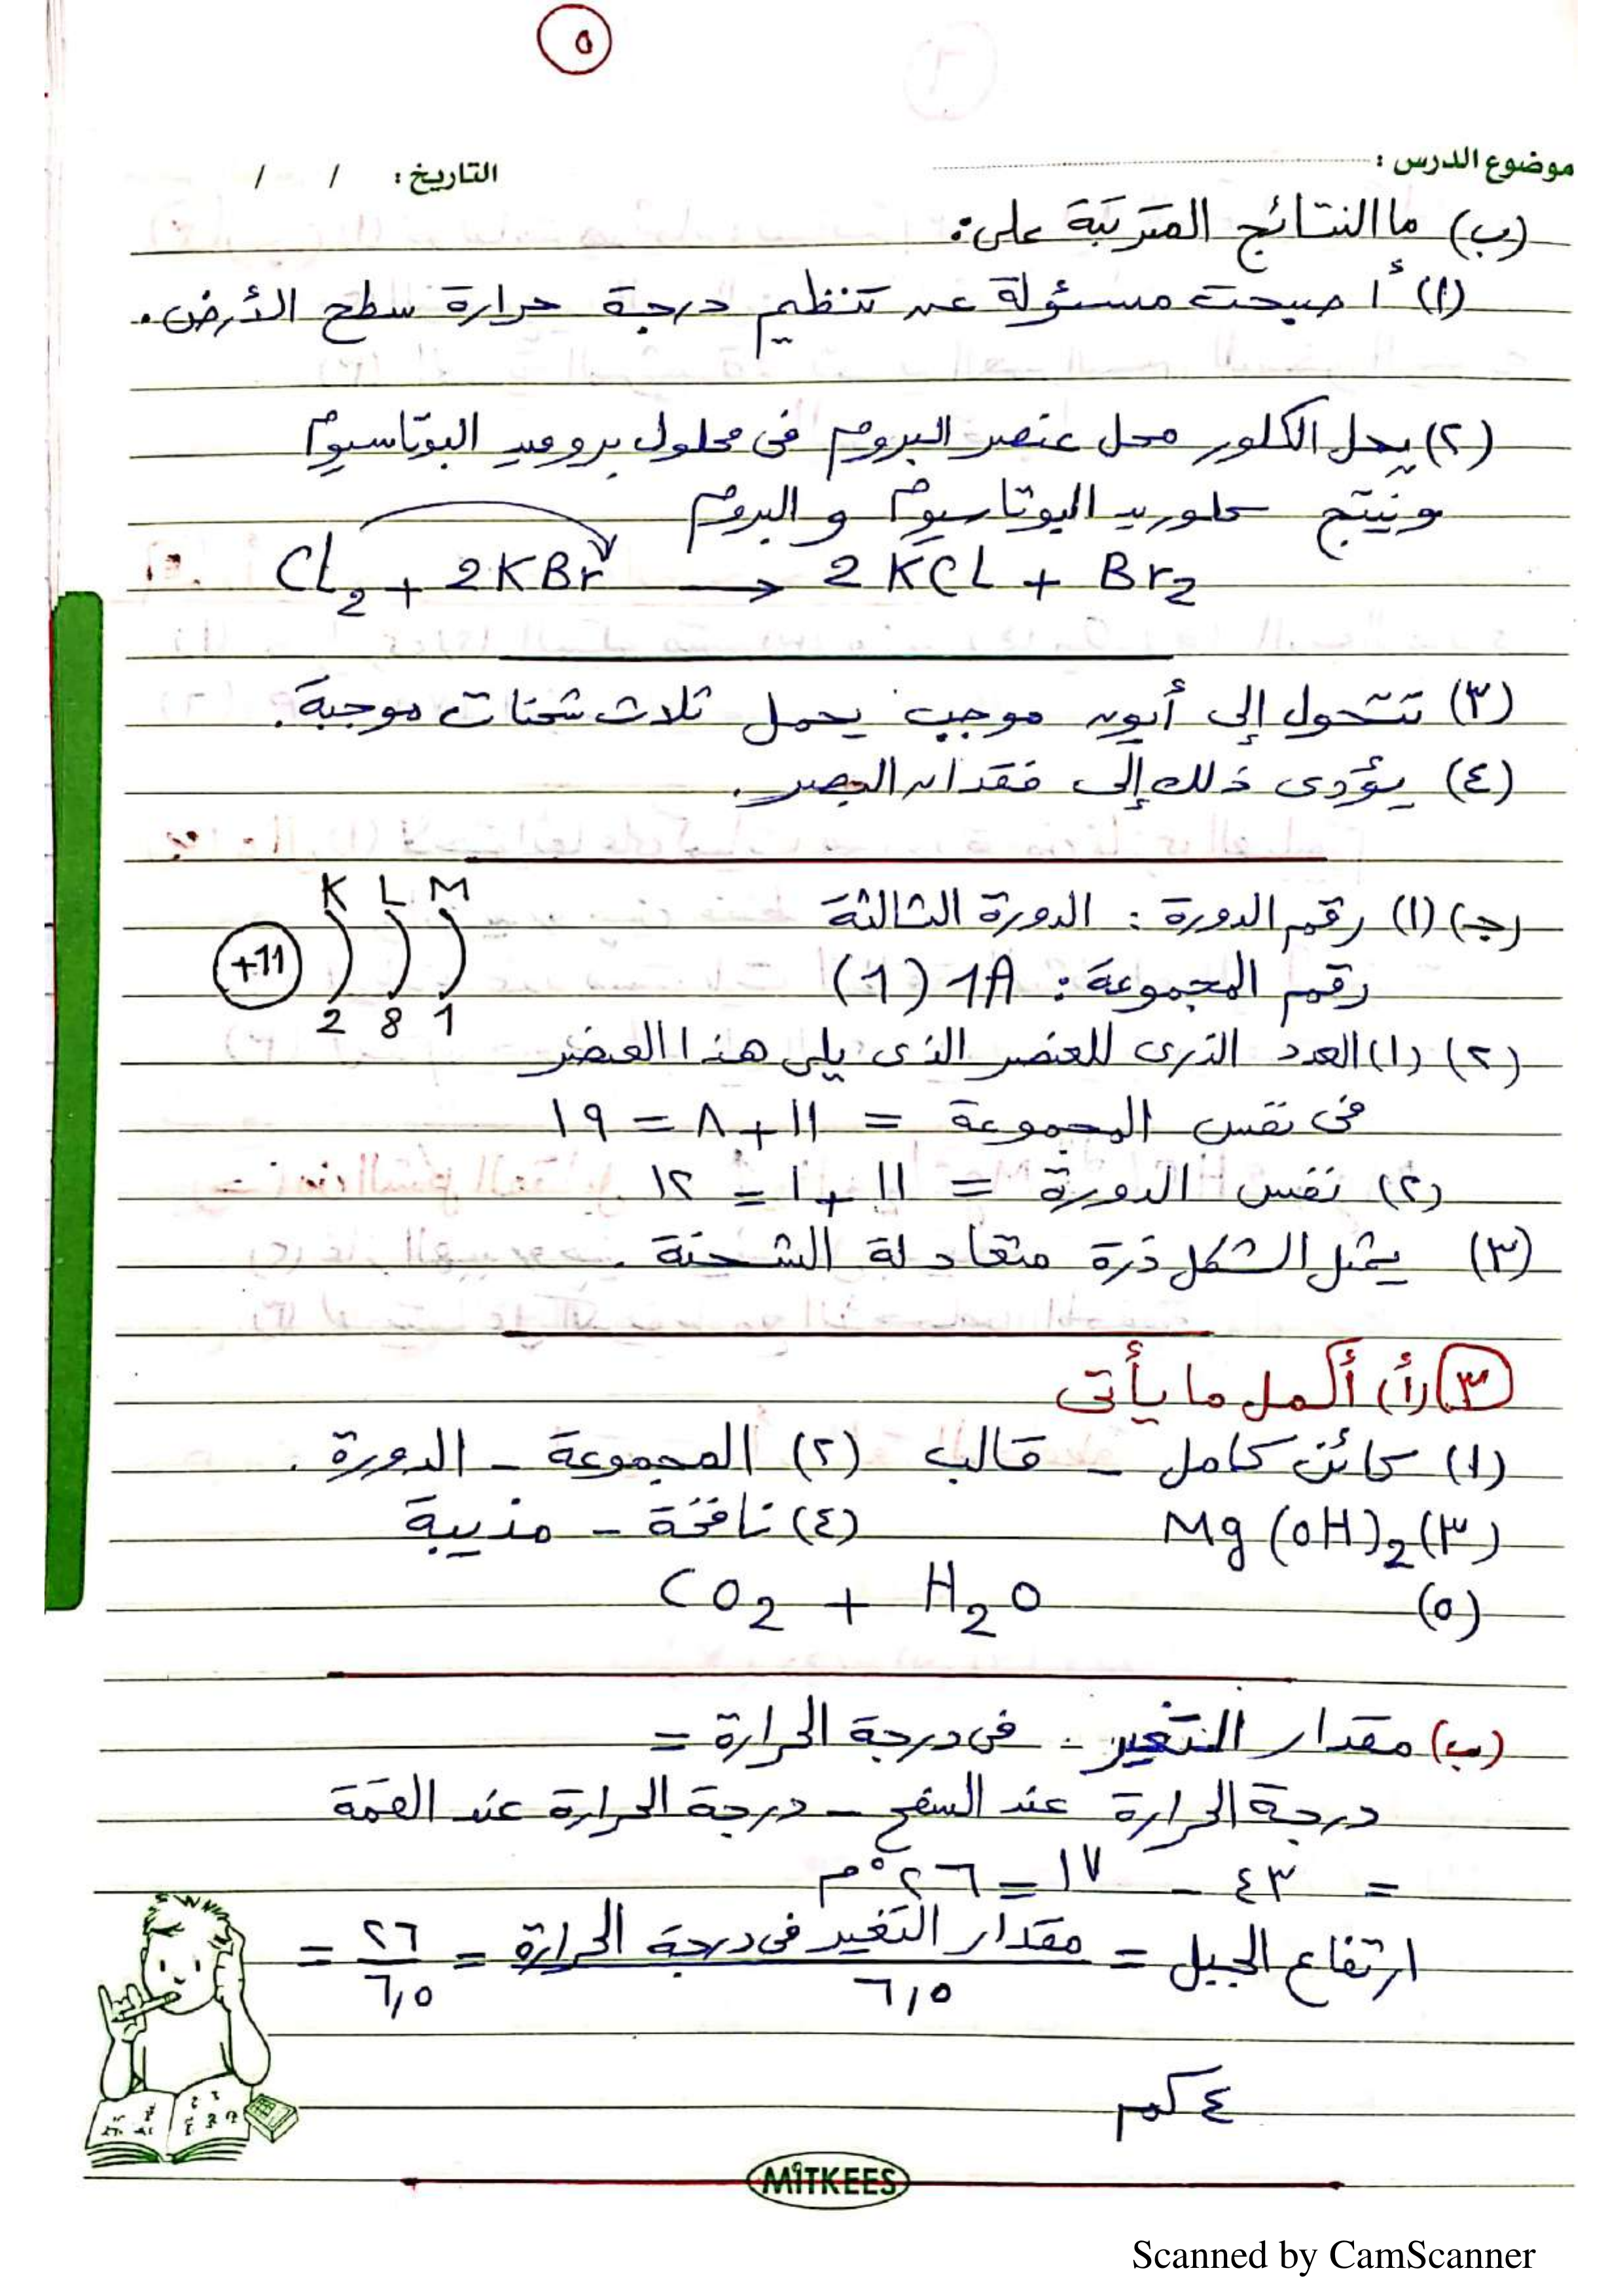 ٥
موضوع الدرس :
التاريخ : / /
(ب) ما النتائج المترتبة على :
(١) أصبحت مسئولة عن تنظيم درجة حرارة سطح الأرض .
(٢) يحل الكلور محل عنصر البروم فى محلول بروميد البوتاسيوم
وينتج كلوريد البوتاسيوم و البروم
Cl₂ + 2KBr → 2KCl + Br₂
(٣) تتحول إلى أيون موجب يحمل ثلاث شحنات موجبة .
(٤) يؤدى ذلك إلى فقدان البصر .
(جـ) (١) رقم الدورة : الدورة الثالثة
K L M
+11
2 8 1
رقم المجموعة : 1A (1)
(٢) (١) العدد الذرى للعنصر الذى يلى هذا العنصر
فى نفس المجموعة = ١١ + ٨ = ١٩
(٢) نفس الدورة = ١١ + ١ = ١٢
(٣) يمثل الشكل ذرة متعادلة الشحنة .
٣ (أ) أكمل ما يأتى
(١) كائن كامل - قالب (٢) المجموعة - الدورة .
(٣) Mg(OH)₂ (٤) نافخة - مذيبة
(٥) CO₂ + H₂O
(ب) مقدار التغير فى درجة الحرارة =
درجة الحرارة عند السفح - درجة الحرارة عند القمة
= ٤٣ - ١٧ = ٢٦ °م
ارتفاع الجبل = مقدار التغير فى درجة الحرارة / ٦,٥ = ٢٦ / ٦,٥ =
٤ كم
MITKEES
Scanned by CamScanner